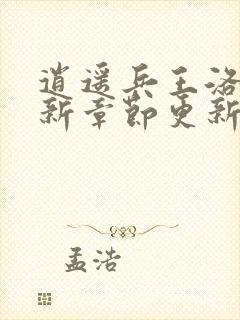 逍遥兵王洛
新章节更新
孟浩